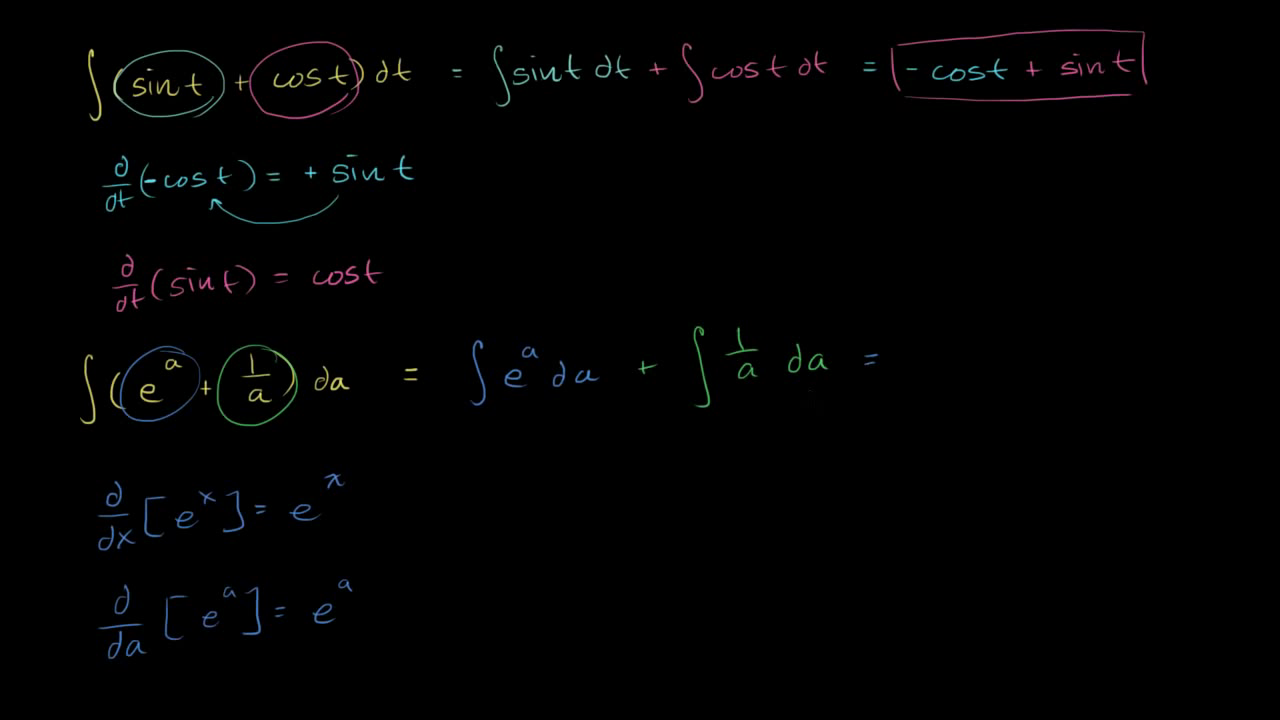 ∫(sin t + cos t) dt = ∫sin t dt + ∫cos t dt = - cos t + sin t
d/dt (-cos t) = + sin t
d/dt (sin t) = cos t
∫(e^a + 1/a) da = ∫ e^a da + ∫ 1/a da =
d/dx [e^x] = e^x
d/da [e^a] = e^a